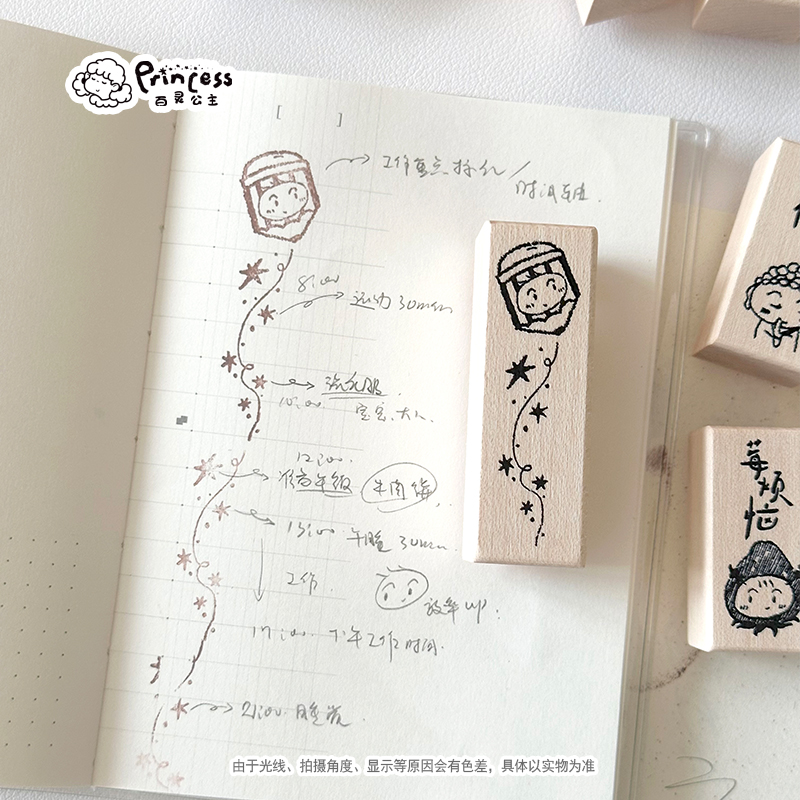 Princess
百灵公主
[ ]
工作重点标记/
时间轴.
8:00
运动 30min
10:00
12:00
牛肉
13:00 午睡 30min
工作
效率up.
17:00 下午工作时间.
21:00 睡觉
莓
烦
恼
由于光线、拍摄角度、显示等原因会有色差，具体以实物为准